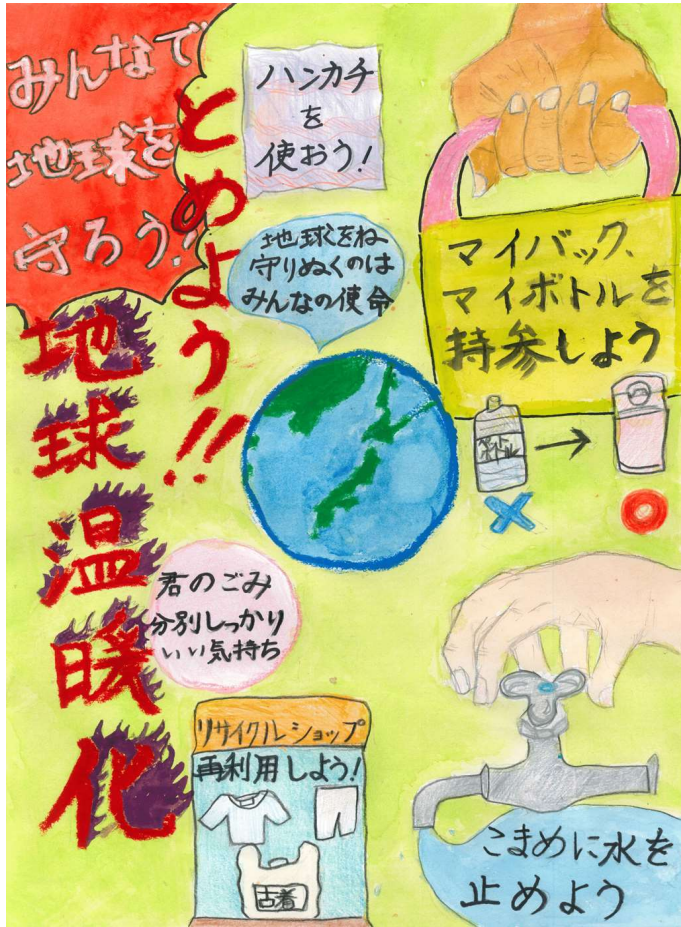 みんなで
地球を
守ろう!!
とめよう!!
地球温暖化
ハンカチ
を
使おう!
地球をね
守りぬくのは
みんなの使命
マイバック、
マイボトルを
持参しよう
ペット
ボトル
君のごみ
分別しっかり
いい気持ち
リサイクルショップ
再利用しよう!
古着
こまめに水を
止めよう